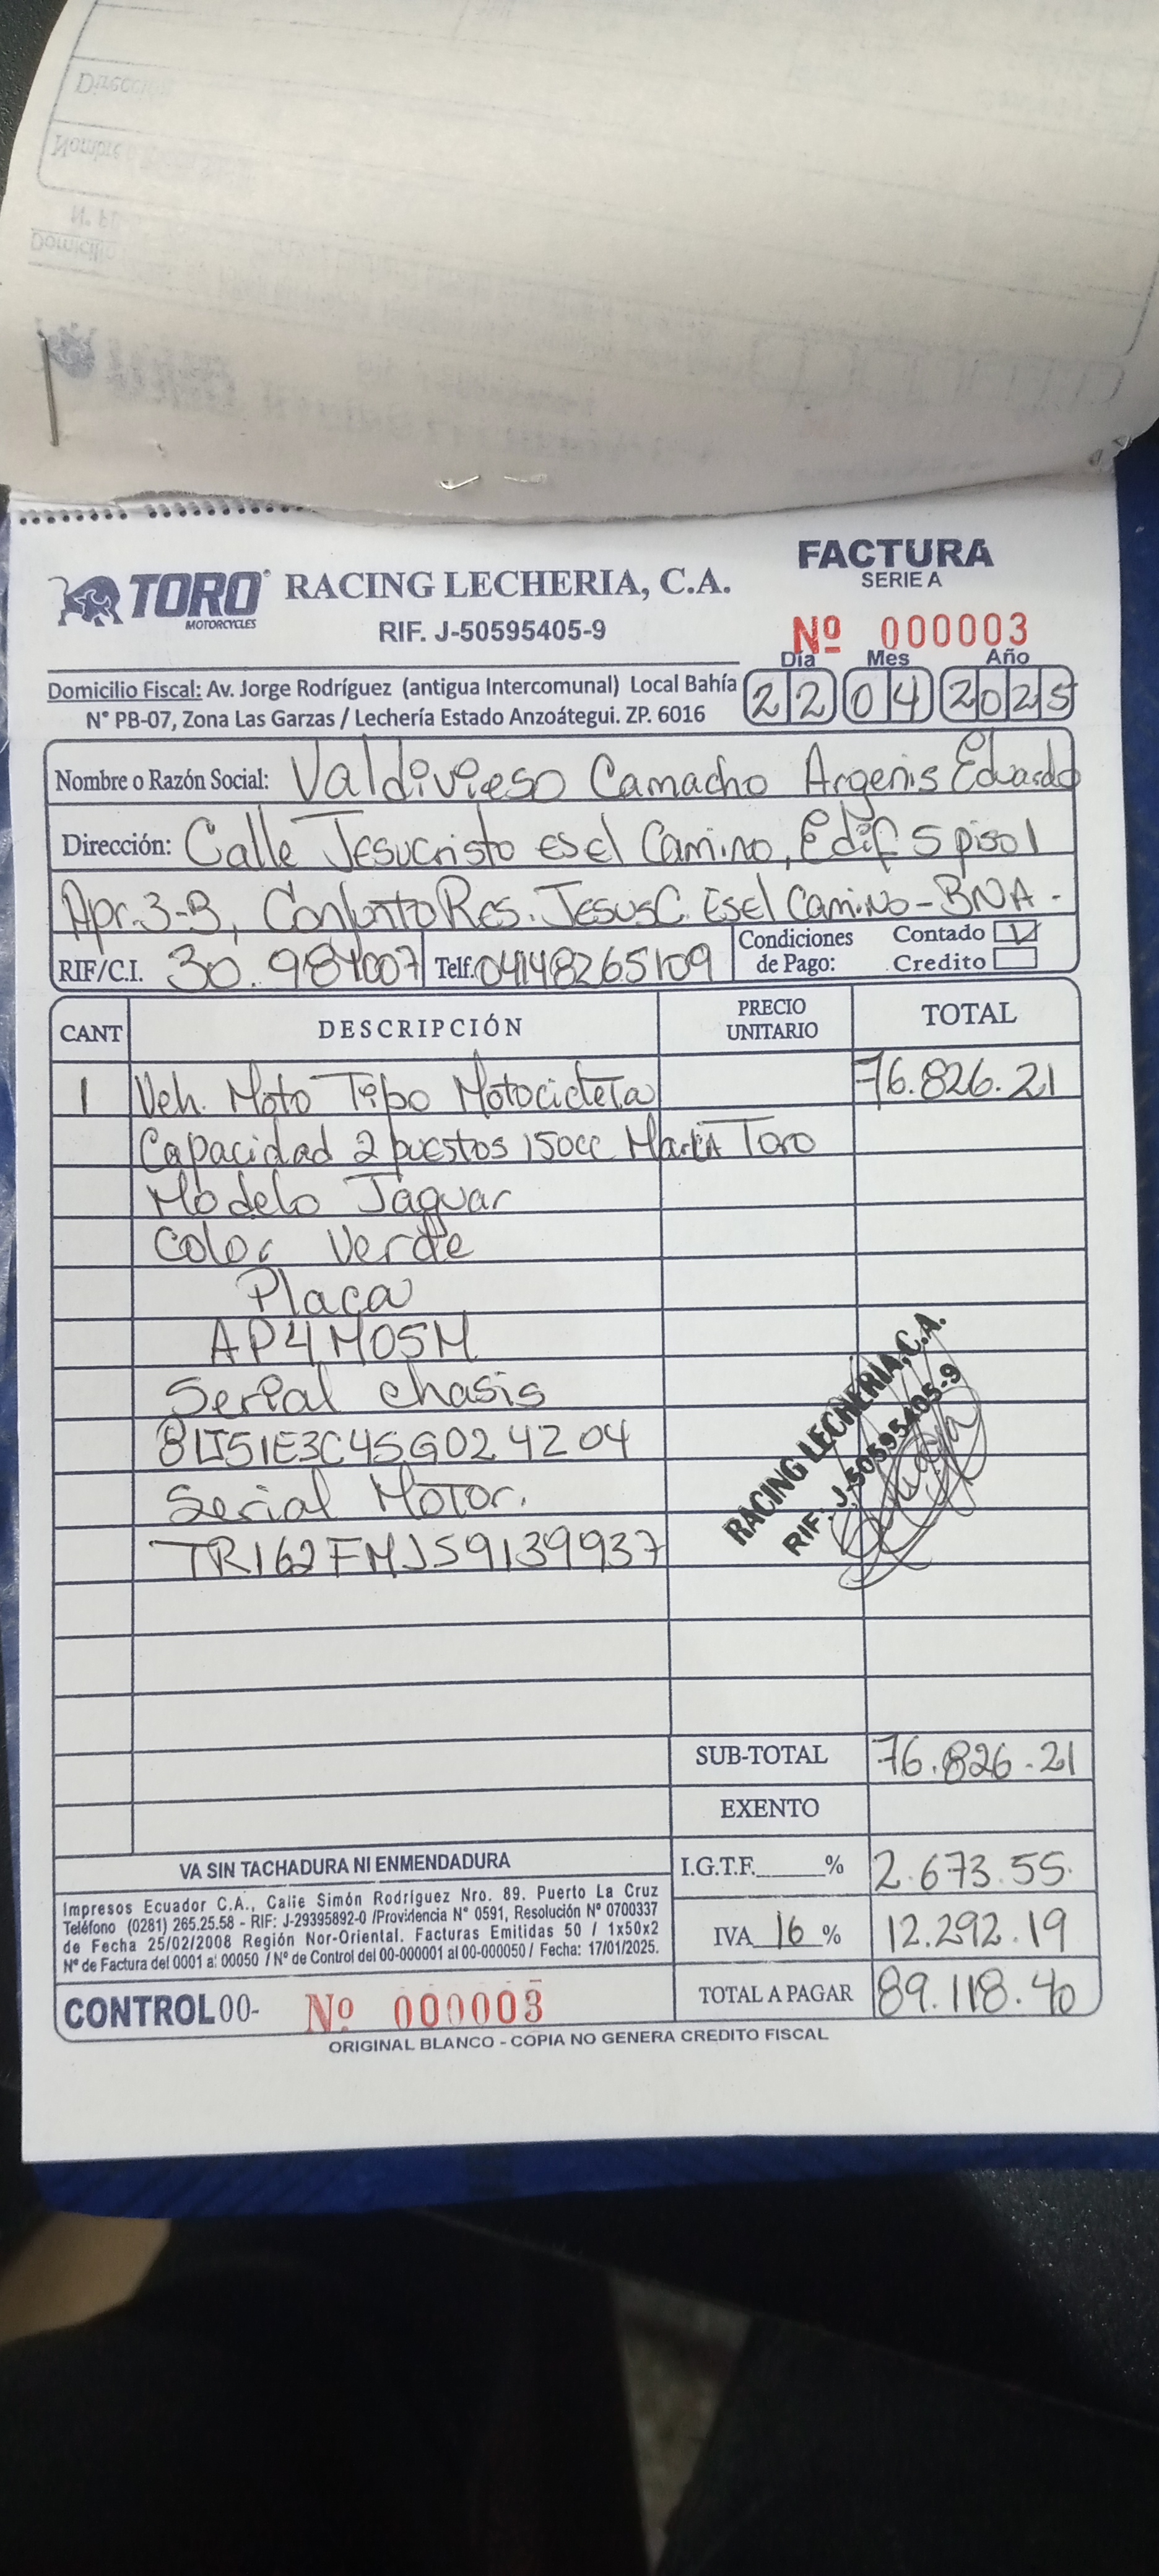 FACTURA
SERIE A
TORO MOTORCYCLES
RACING LECHERIA, C.A.
RIF. J-50595405-9
Nº 000003
Día Mes Año
22 04 2025
Domicilio Fiscal: Av. Jorge Rodríguez (antigua Intercomunal) Local Bahía
N° PB-07, Zona Las Garzas / Lechería Estado Anzoátegui. ZP. 6016
Nombre o Razón Social: Valdivieso Camacho Argenis Eduardo
Dirección: Calle Jesucristo es el Camino, Edif 5 piso 1
Apr. 3-B, Conjunto Res. Jesus C. Es el Camino - BNA.
RIF/C.I. 30.984007 Telf. 04148265109 Condiciones de Pago: Contado ✓ Credito
CANT DESCRIPCIÓN PRECIO UNITARIO TOTAL
1 Veh. Moto Tipo Motocicleta 76.826.21
Capacidad 2 puestos 150cc Marca Toro
Modelo Jaguar
Color Verde
Placa
AP4M05M
Serial chasis
8LJ51E3C4SG024204
Serial Motor.
TR162FMJS9139937
RACING LECHERIA, C.A.
RIF: J-50595405-9
SUB-TOTAL 76.826.21
EXENTO
VA SIN TACHADURA NI ENMENDADURA
I.G.T.F.______% 2.673.55.
Impresos Ecuador C.A., Calle Simón Rodríguez Nro. 89. Puerto La Cruz
Teléfono (0281) 265.25.58 - RIF: J-29395892-0 /Providencia N° 0591, Resolución N° 0700337
de Fecha 25/02/2008 Región Nor-Oriental. Facturas Emitidas 50 / 1x50x2
N° de Factura del 0001 al 00050 / N° de Control del 00-000001 al 00-000050 / Fecha: 17/01/2025.
IVA 16 % 12.292.19
TOTAL A PAGAR 89.118.40
CONTROL 00- Nº 000003
ORIGINAL BLANCO - COPIA NO GENERA CREDITO FISCAL